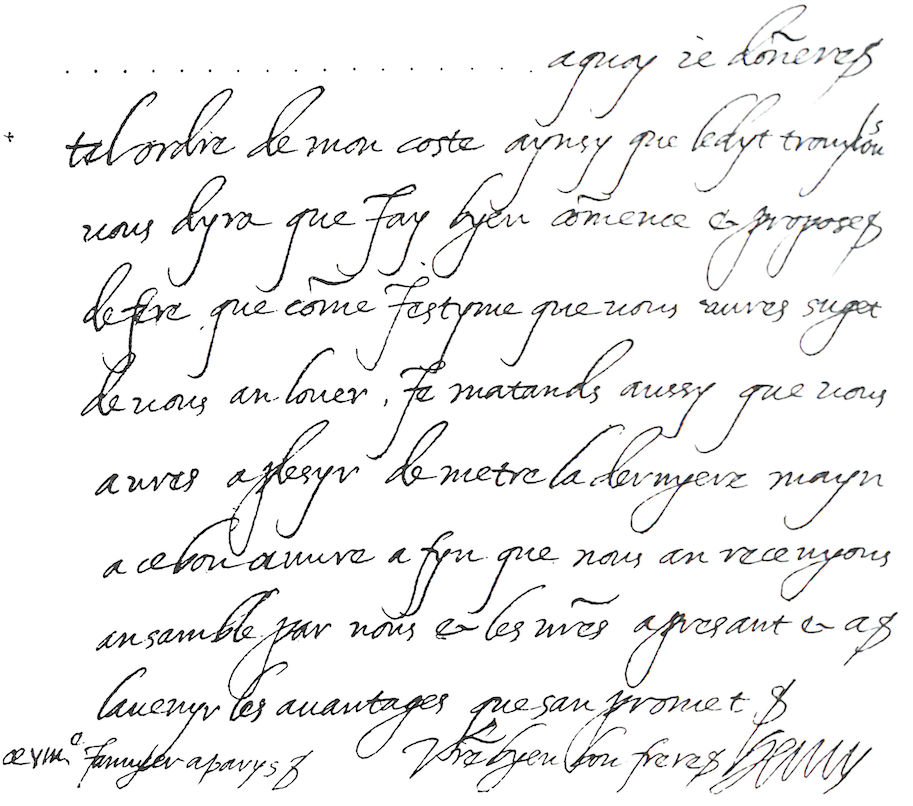 . . . . . . . . . . . . . . . . . aquoy ie dõneres
tel ordre de mon coste aynsy que ledyt trouylons
vous dyra que Jay byen cõmence & propose
de fere que cõme Jestyme que vous aures suget
de vous an louer . Je matands aussy que vous
aures a plesyr de metre la dernyere mayn
a ce bon œuure a fyn que nous an receuyons
ansamble par nous & les nr̃es apresant & a
lauenyr les auantages que san promet
ce viii Januyer a parys Vr̃e byen bon frere Henry